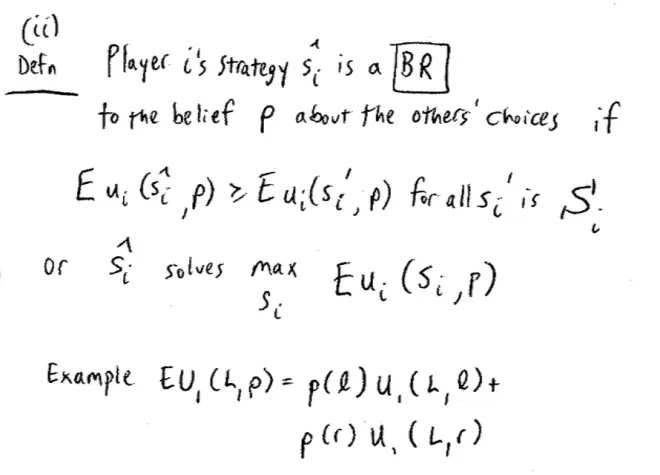 (ii)
Defn Player i's strategy ŝᵢ is a BR
to the belief p about the others' choices if
E uᵢ (ŝᵢ, p) ≥ E uᵢ(sᵢ', p) for all sᵢ' is Sᵢ'
or ŝᵢ solves max E uᵢ (Sᵢ, p)
Sᵢ
Example EU₁ (L, p) = p(l) u₁ (L, l) +
p(r) u₁ (L, r)